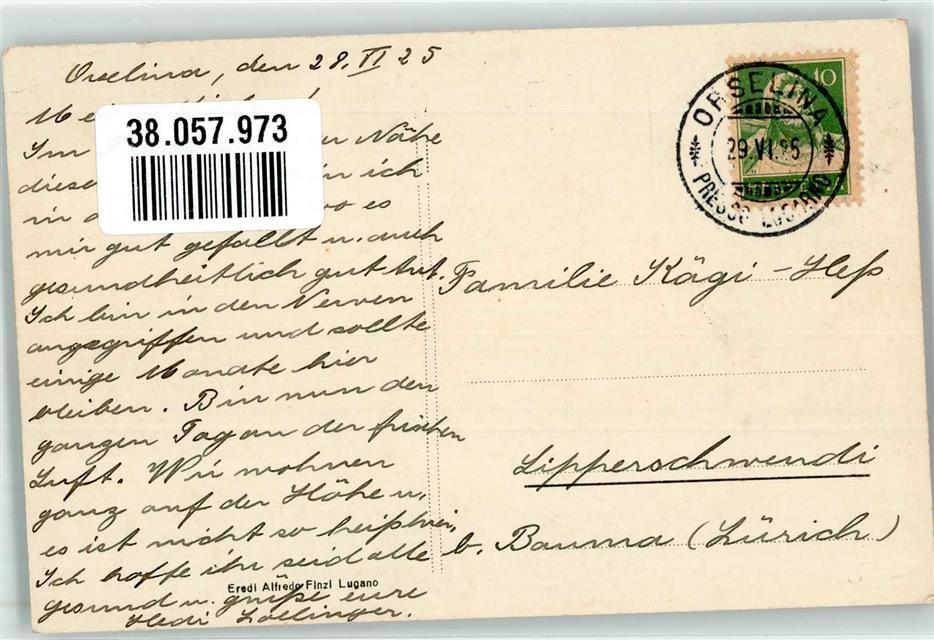 Orselina, den 28. VI 25
38.057.973
Im Nähe
diese ich
in wo es
mir gut gefällt u. auch
gesundheitlich gut tut.
Ich bin in den Nerven
angegriffen und sollte
einige Monate hier
bleiben. Bin nun den
ganzen Tag an der frischen
Luft. Wir wohnen
ganz auf der Höhe u.
es ist nicht so heiß hier,
Ich hoffe ihr seid alle
gesund u. grüße eure
Hedi Zollinger.
Eredi Alfredo Finzi Lugano
10
ORSELINA
29.VI.25
PRESSO LOCARNO
Familie Kägi-Heß
Lipperschwendi
b. Bauma (Zürich)